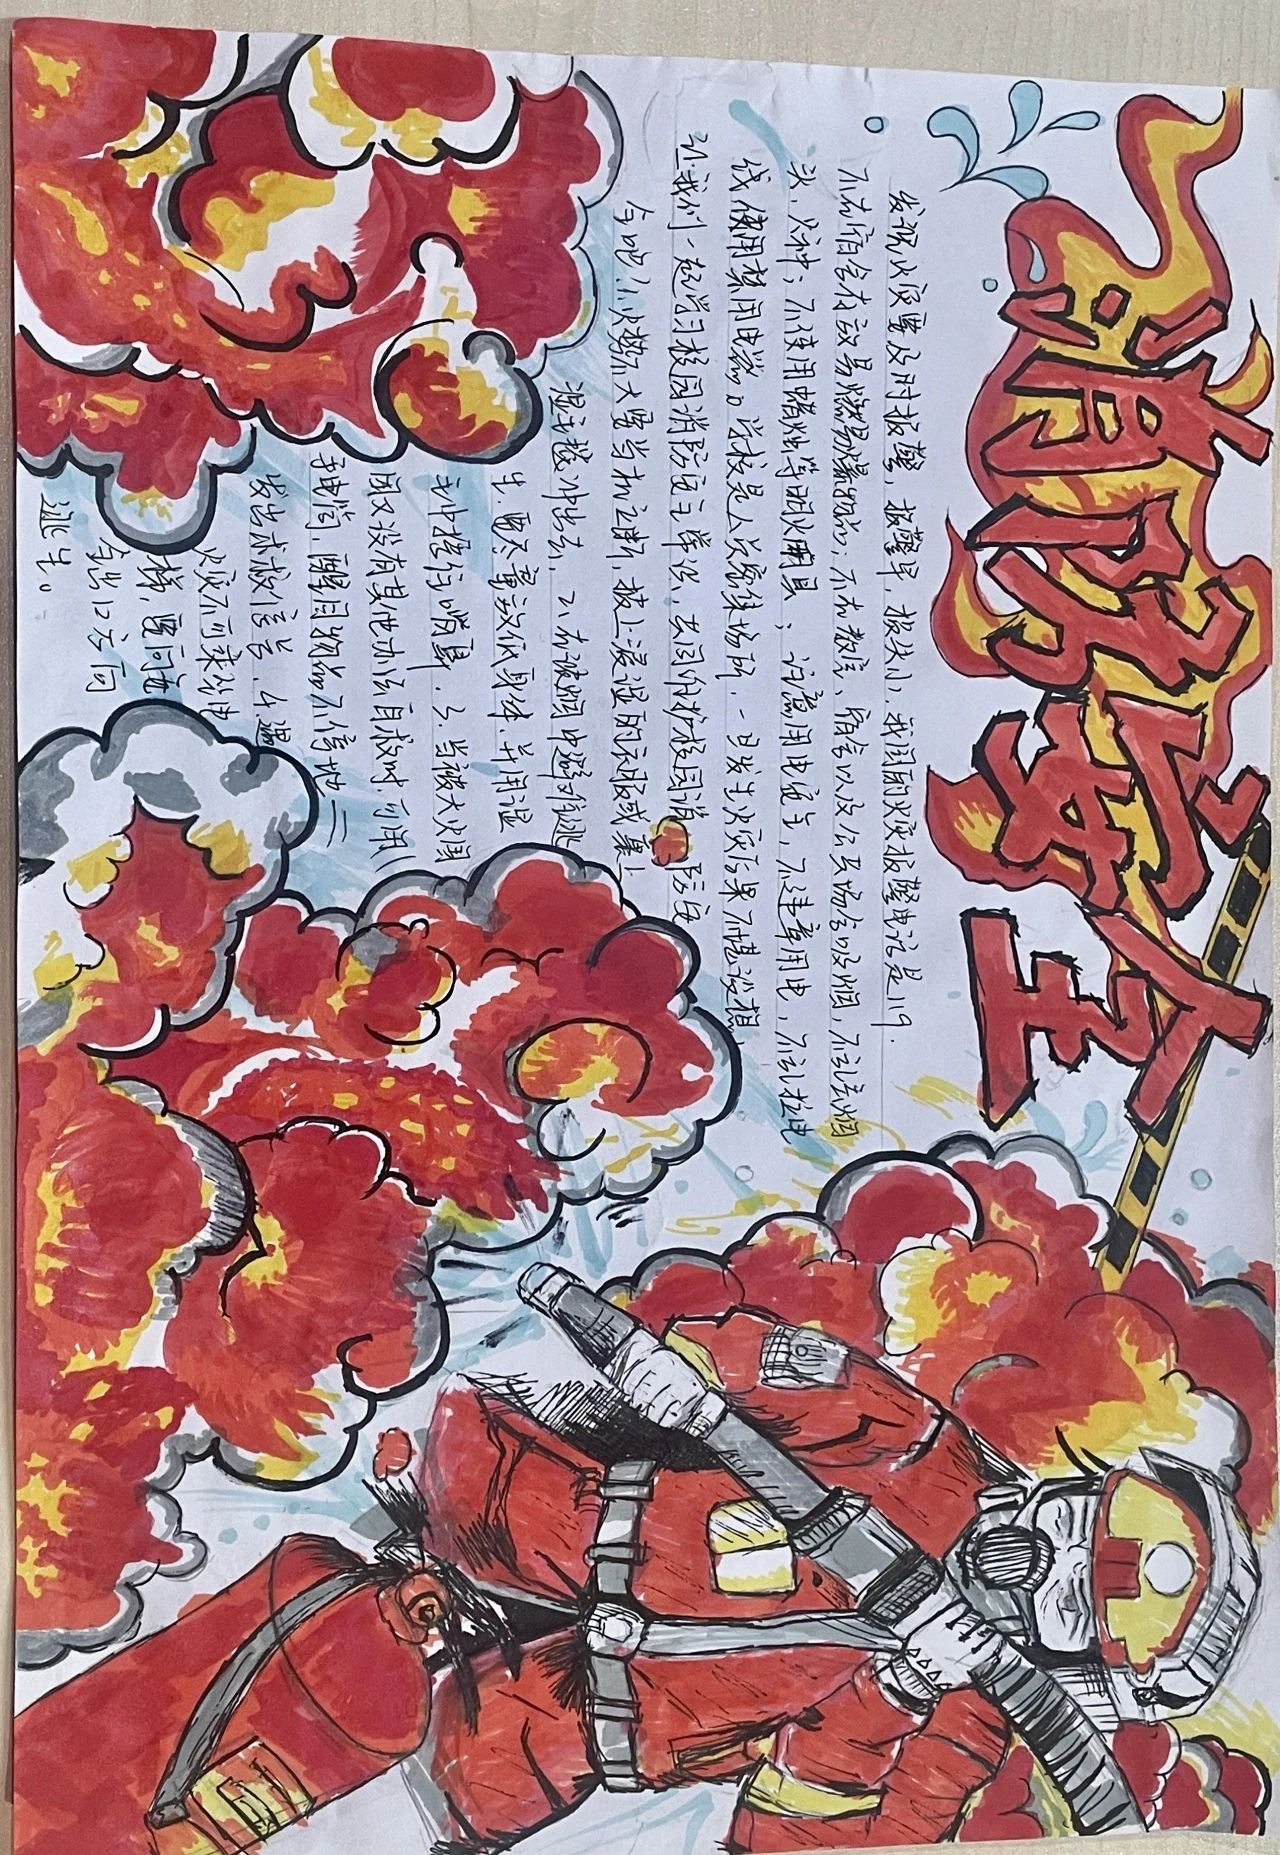 消防安全
发现火灾要及时报警，报警早，损失小，我国的火灾报警电话是119.
不在宿舍存放易燃易爆物品；不在教室、宿舍以及公共场合吸烟，不乱丢烟
头、火种；不使用蜡烛等明火用具；注意用电安全，不违章用电，不乱拉电
线，使用禁用电器。学校是人员密集场所，一旦发生火灾后果不堪设想，
让我们一起学习校园消防安全常识，共同维护校园消防安
全吧！1.火势不大要当机立断，披上浸湿的衣服或裹上
湿毛毯冲出去，2.在被烟中避难逃
生，要尽量放低身体，并用湿
毛巾捂住嘴鼻．3．当被大火围
困又没有其他办法自救时，可用
手电筒，醒目物品不停地
发出求救信号．4.遇
火灾不可乘坐电
梯，要向安
全出口方向
逃生。